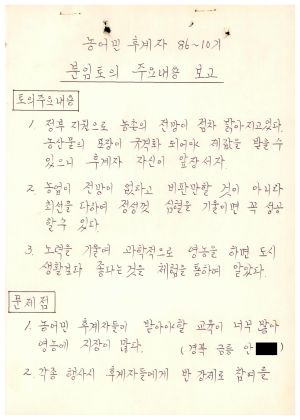 농어민 후계자 86~10기
분임토의 주요내용 보고
토의주요내용
1. 정부 지원으로 농촌의 전망이 점차 밝아지고있다.
농산물의 포장이 규격화 되어야 제값을 받을수
있으니 후계자 자신이 앞장서자.
2. 농업이 전망이 없다고 비관만할 것이 아니라
최선을 다하여 정성껏 심혈을 기울이면 꼭 성공
할수 있다.
3. 노력을 기울여 과학적으로 영농을 하면 도시
생활보다 좋다는것을 체험을 통하여 알았다.
문제점
1. 농어민 후계자들이 받아야할 교육이 너무 많아
영농에 지장이 많다. (경북 금릉 안
2. 각종 행사시 후계자들에게 반 강제로 참여를